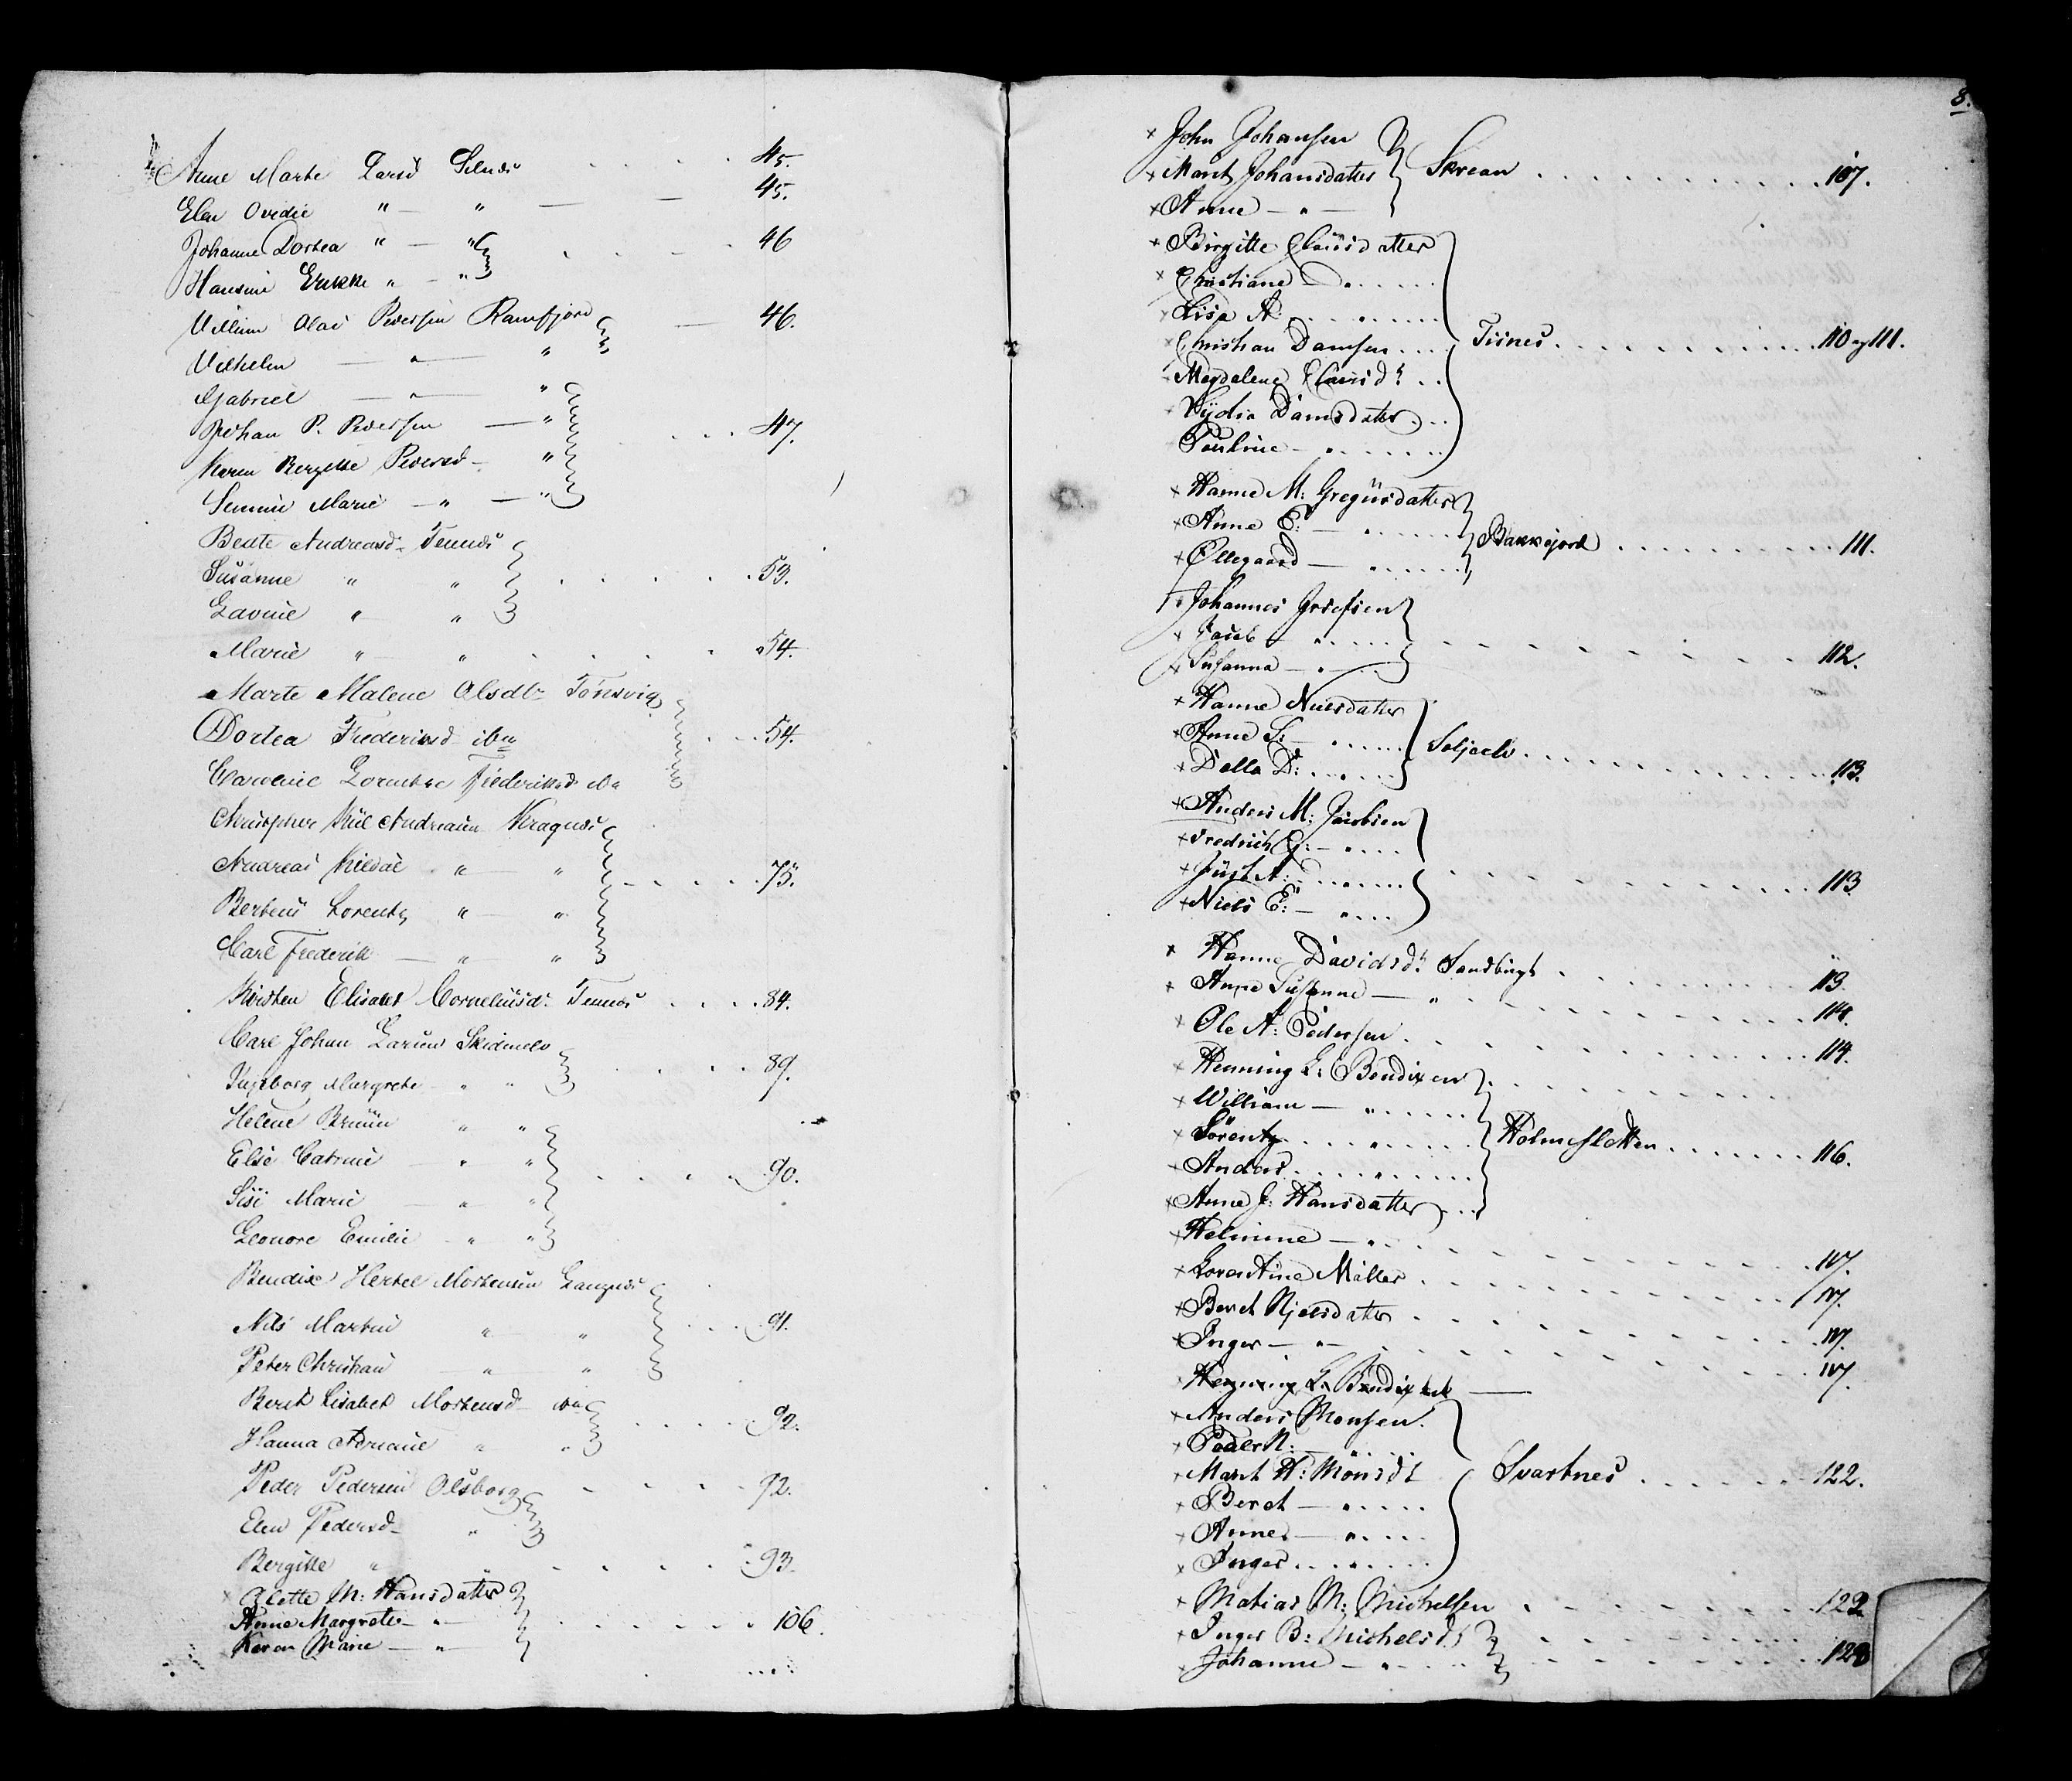 Anne Marte Larsd Selnæs . . . . 45.
Elen Ovidie " — " — — 45.
Johanne Dortea " — " . . . 46
Hansine Erikke " — "
Villum Olai Pedersen Ramfjord — 46.
Vilhelm — " — "
Gabriel — " — "
Johan P. Pedersen — " . . . 47.
Karen Bergitte Pedersd — "
Semine Marie — " — "
Beate Andreasd. Tennes
Susanne " " . . . . . . 53.
Lavine " "
Marie " " . . . . 54.
Marte Malene Olsdtr Tønsvig
Dortea Frederiksd ibm . . . 54.
Frederiksd ibm
Christopher Andreasen Kragnæs
Andreas Kildal " " . . . . . 75.
Berteus Lorentz " "
Carl Frederik — " "
Kirsten Elisabet Corneliusd. Tennes . . . . 84.
Carl Johan Larsen Skidenelv
Ingeborg Margrete " " . . . . 89.
Helene Bruun " "
Else Catrine " " . . . . 90.
Sisi Marie " "
Leonore Emilie " "
Bendix Hertel Mortensen Langnæs
Nils Martin " " . . . 91.
Peter Christian " "
Berit Lisabet Mortensd ibm . . . . 92.
Hanna Adriane " "
Peder Pedersen Olsborg . . . . 92.
Elen Pedersd "
Bergitte " " . . . . 93.
× Olette M: Hansdatter
Anne Margrete — " — . . . . . . 106.
Karen Marie — " —
8.
× John Johansen
× Marit Johansdatter Skrean . . . . . . . . . . . 107.
× Anne — " —
× Birgitte Clausdatter
× Christiane — " . . . . .
× Lisa A: . . . " . . . . .
× Christian Damsen . . . Tisnes . . . . . . . . . . 110 og 111.
× Magdalene Clausdr . .
× Lydia Damsdatter . . .
× Pauline — " . . . . .
× Hanne M: Gregusdatter
× Anne E: — " . . . . . Bakkejord . . . . . . . . . 111.
× Ellegaard — " . . . . .
× Johannes Josefsen
× Jacob — " . . . . . . . . . . . . . . 112.
× Susanna — " —
× Hanne Nielsdatter
× Anne S: — " . . . . Seljeelv . . . . . . . . . . . . . 113.
× D: . . . " . . .
× Anders M: Jacobsen
× Fredrich G: — " . . . .
× Just A: — " . . . . . . . . . . . . . . . 113
× Niels E: — " . . . .
× Hanne Davidsdr Sandbugt . . . . . . . . . 113.
× Anne Susanne — " . . . . . . . . . . . . 114.
× Ole A: Pedersen . . . . . . . . . . . . . 114.
× Henning L: Bendixen . . . . . . . . . . .
× William — " . . . . .
× Lorentz . . . . " . . . . . Holmesletten . . . . . . . 116.
× Anders . . . . " . . . . .
× Anne J: Hansdatter . . .
× Helmine — " . . . . . . . . . . . . . 117.
× Lorentine Müller . . . . . . . . . . . . 117.
× Beret Njelsdatter . . . . . . . . . . . . 117.
× Inger — " — . . . . . . . . . . . . . 117.
× Henning L: Bendixen —
× Anders Monsen.
× Peder N: — " . . . .
× Marit H: Monsdr Svartnes . . . . . . 122.
× Beret — " . . . . .
× Anne — " . . . .
× Inger . . . " . . . . .
× Matias M: Michelsen . . . . . . . . 122
× Inger B: Michelsdr . . . . . .
× Johanne — " . . . . . . . . . . . 123